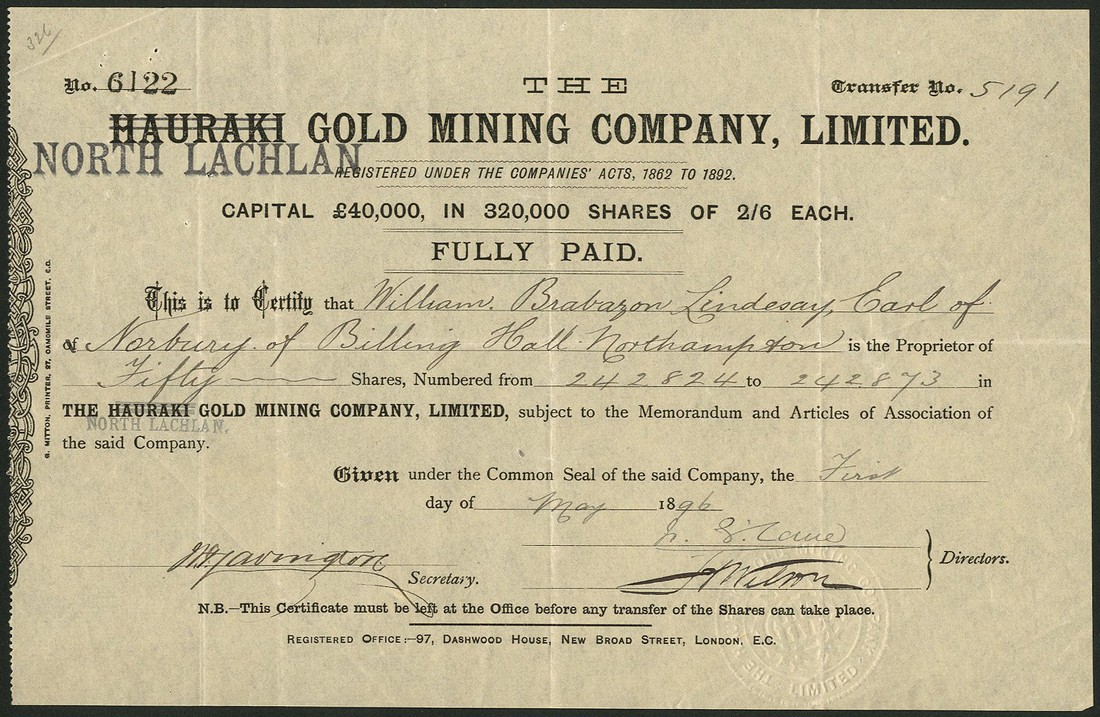 326
No. 6122
THE
Transfer No. 5191
HAURAKI GOLD MINING COMPANY, LIMITED.
NORTH LACHLAN
REGISTERED UNDER THE COMPANIES' ACTS, 1862 TO 1892.
CAPITAL £40,000, IN 320,000 SHARES OF 2/6 EACH.
FULLY PAID.
This is to Certify that William Brabazon Lindesay, Earl of
of Norbury of Billing Hall Northampton is the Proprietor of
Fifty Shares, Numbered from 242824 to 242873 in
THE HAURAKI GOLD MINING COMPANY, LIMITED, subject to the Memorandum and Articles of Association of
NORTH LACHLAN.
the said Company.
Given under the Common Seal of the said Company, the First
day of May 1896
Directors.
Secretary.
N.B.—This Certificate must be left at the Office before any transfer of the Shares can take place.
REGISTERED OFFICE:—97, DASHWOOD HOUSE, NEW BROAD STREET, LONDON, E.C.
G. MITTON, PRINTER, 97, CAMOMILE STREET, E.C.